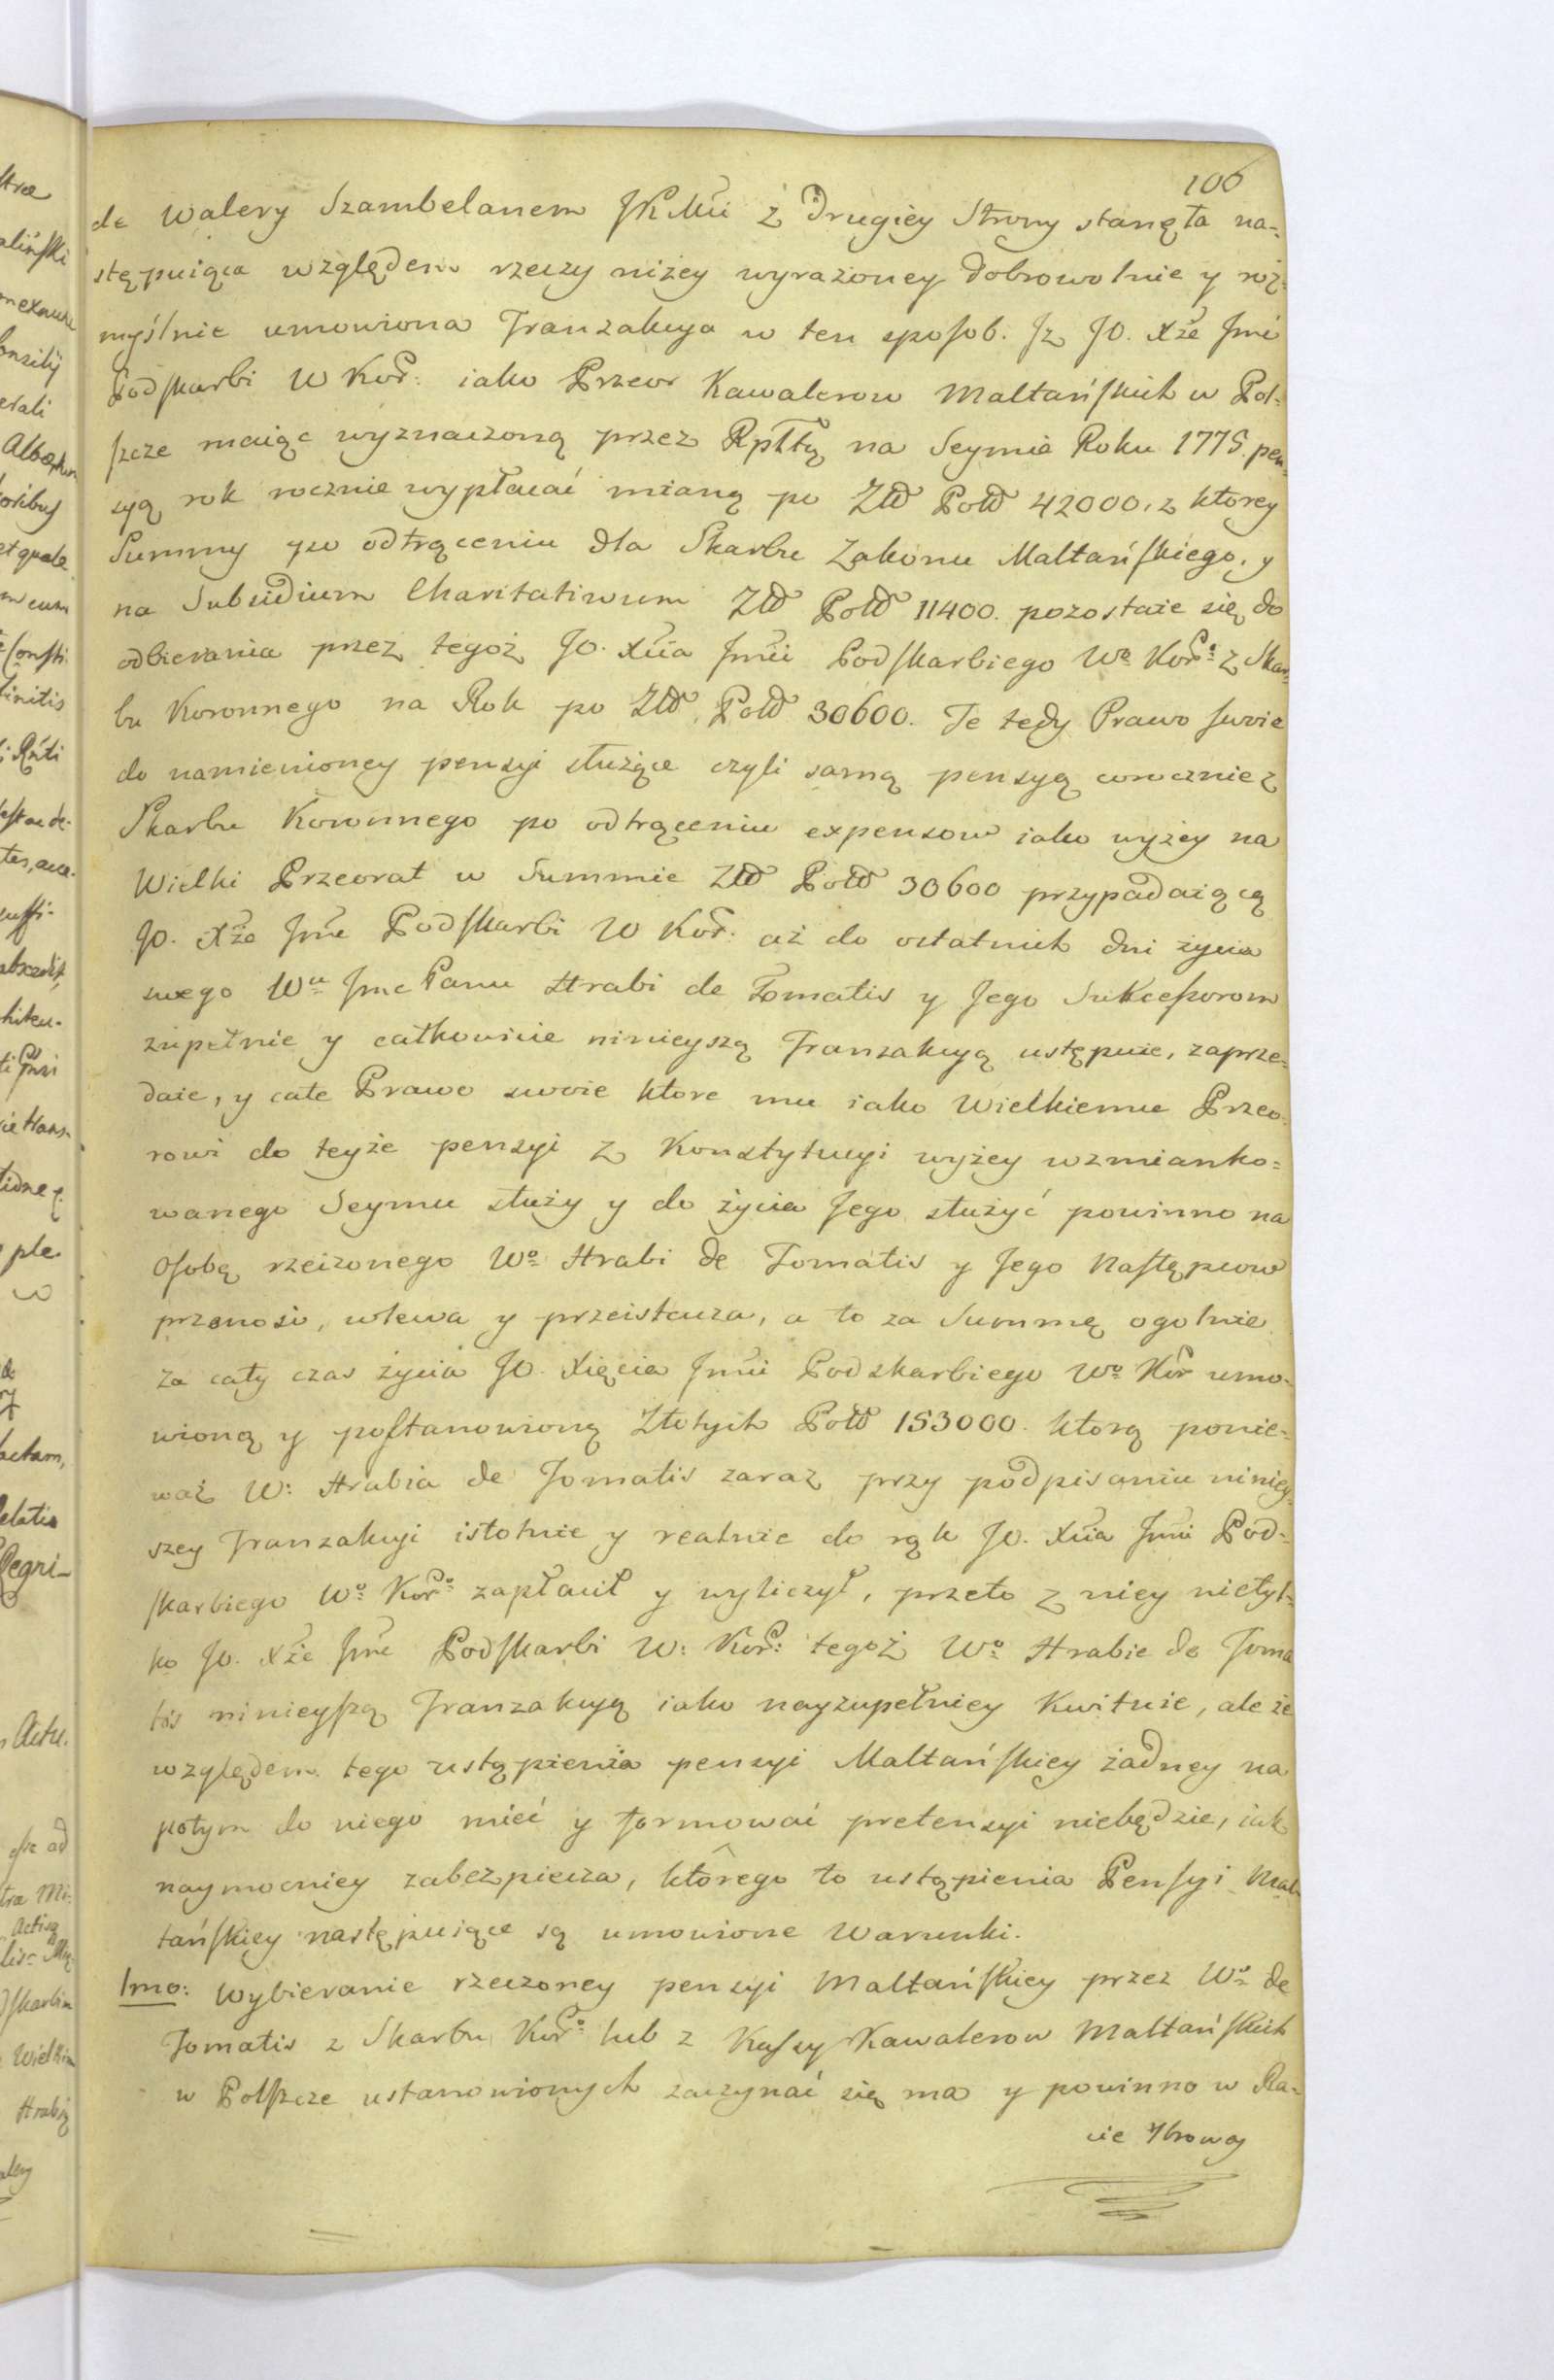 106
de Walery Szambelanem JKMci z Drugiey Strony stanęła na-
stępuiąca względem rzeczy niżey wyrażoney dobrowolnie y roz-
myślnie umowiona Tranzakcya w ten sposob. Jz JO. Xże Jmć
Podskarbi W Kor: iako Przeor Kawalerow Maltańskich w Pol-
szcze maiąc wyznaczoną przez Rpltę na Seymie Roku 1775. pen-
syą rok rocznie wypłacać mianą po Złł Poll 42000. z ktorey
Summy po odtrąceniu dla Skarbu Zakonu Maltańskiego, y
na Subsidium Charitativum Złł Poll 11400. pozostaie się do
odbierania przez tegoż JO. Xcia Jmci Podskarbiego Wo Koro: z Skar-
bu Koronnego na Rok po Złł Poll 30600. Te tedy Prawo swoie
do namienioney pensyi służące czyli samą pensyą corocznie z
Skarbu Koronnego po odtrąceniu expensow iako wyżey na
Wielki Przeorat w Summie Złł Poll 30600 przypadaiącą
JO. Xże Jmć Podskarbi W Kor: aż do ostatnich dni życia
swego Wu Jmc Panu Hrabi de Tomatis y Jego Sukcessorom
zupełnie y całkowicie ninieyszą Tranzakcyą ustępuie, zaprze-
daie, y całe Prawo swoie ktore mu iako Wielkiemu Przeo-
rowi do teyże pensyi z Konstytucyi wyżey wzmianko-
wanego Seymu służy y do życia Jego służyć powinno na
Osobę rzeczonego Wo Hrabi de Tomatis y Jego Następcow
przenosi, wlewa y przeistacza, a to za Summę ogolnie
za cały czas życia JO. Xięcia Jmci Podskarbiego Wo Kor umo-
wioną y postanowioną Złotych Poll 153000. ktorą ponie-
waż W: Hrabia de Tomatis zaraz przy podpisaniu niniey-
szey Tranzakcyi istotnie y realnie do rąk JO. Xcia Jmci Pod-
skarbiego Wo Koro: zapłacił y wyliczył, przeto z niey nietyl-
ko JO. Xże Jmć Podskarbi W: Kor: tegoż Wo Hrabie de Toma
tis ninieyszą Tranzakcyą iako nayzupełniey Kwituie, ale że
względem tego ustąpienia pensyi Maltańskiey żadney na
potym do niego mieć y formować pretensyi niebędzie, iak
naymocniey zabezpiecza, ktôrego to ustąpienia Pensyi Mal-
tańskiey następuiące są umowione Warunki.
1mo: Wybieranie rzeczoney pensyi Maltańskiey przez Wo de
Tomatis z Skarbu Koro: lub z Kassy Kawalerow Maltańskich
w Polszcze ustanowionych zaczynać się ma y powinno w Ra-
cie